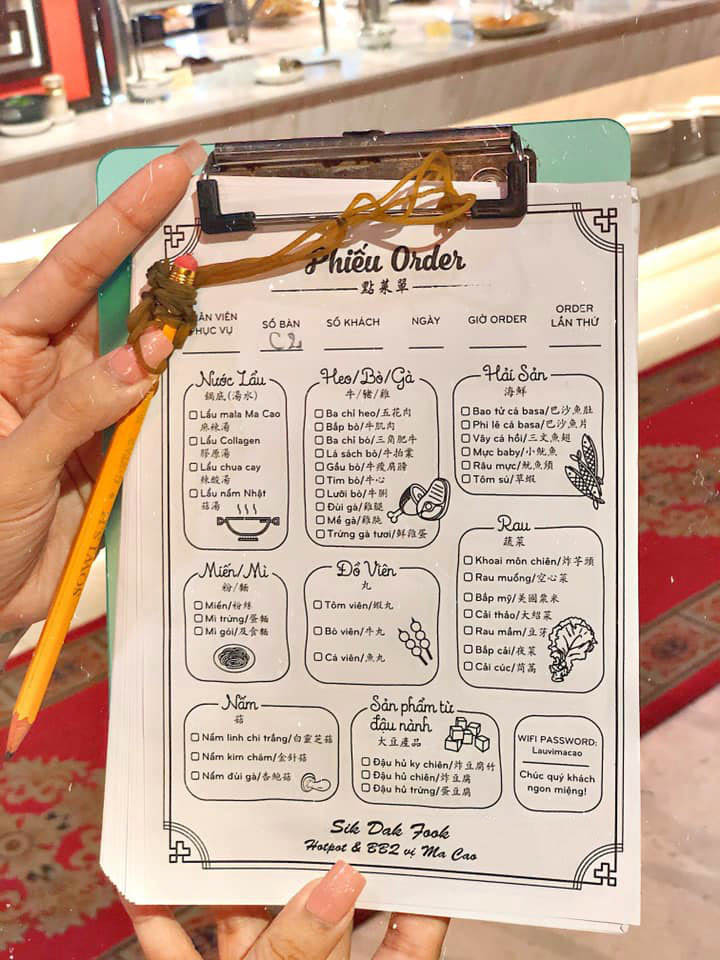 Phiếu Order
點菜單
NHÂN VIÊN PHỤC VỤ
SỐ BÀN
SỐ KHÁCH
NGÀY
GIỜ ORDER
ORDER LẦN THỨ
C2
Nước Lẩu
鍋底(湯水)
Lẩu mala Ma Cao
麻辣湯
Lẩu Collagen
膠原湯
Lẩu chua cay
辣酸湯
Lẩu nấm Nhật
菇湯
Heo/Bò/Gà
牛/豬/雞
Ba chỉ heo/五花肉
Bắp bò/牛肌肉
Ba chỉ bò/三角肥牛
Lá sách bò/牛拍葉
Gầu bò/牛瘦肩膀
Tim bò/牛心
Lưỡi bò/牛脷
Đùi gà/雞腿
Mề gà/雞胗
Trứng gà tươi/鮮雞蛋
Hải Sản
海鮮
Bao tử cá basa/巴沙魚肚
Phi lê cá basa/巴沙魚片
Vây cá hồi/三文魚翅
Mực baby/小魷魚
Râu mực/魷魚鬚
Tôm sú/草蝦
Rau
蔬菜
Khoai môn chiên/炸芋頭
Rau muống/空心菜
Bắp mỹ/美國粟米
Cải thảo/大紹菜
Rau mầm/豆芽
Bắp cải/夜菜
Cải cúc/茼蒿
Miến/Mì
粉/麵
Miến/粉絲
Mì trứng/蛋麵
Mì gói/及食麵
Đồ Viên
丸
Tôm viên/蝦丸
Bò viên/牛丸
Cá viên/魚丸
Nấm
菇
Nấm linh chi trắng/白靈芝菇
Nấm kim châm/金針菇
Nấm đùi gà/杏鮑菇
Sản phẩm từ
đậu nành
大豆產品
Đậu hủ ky chiên/炸豆腐竹
Đậu hủ chiên/炸豆腐
Đậu hủ trứng/蛋豆腐
WIFI PASSWORD:
Lauvimacao
Chúc quý khách
ngon miệng!
Sik Dak Fook
Hotpot & BBQ vị Ma Cao